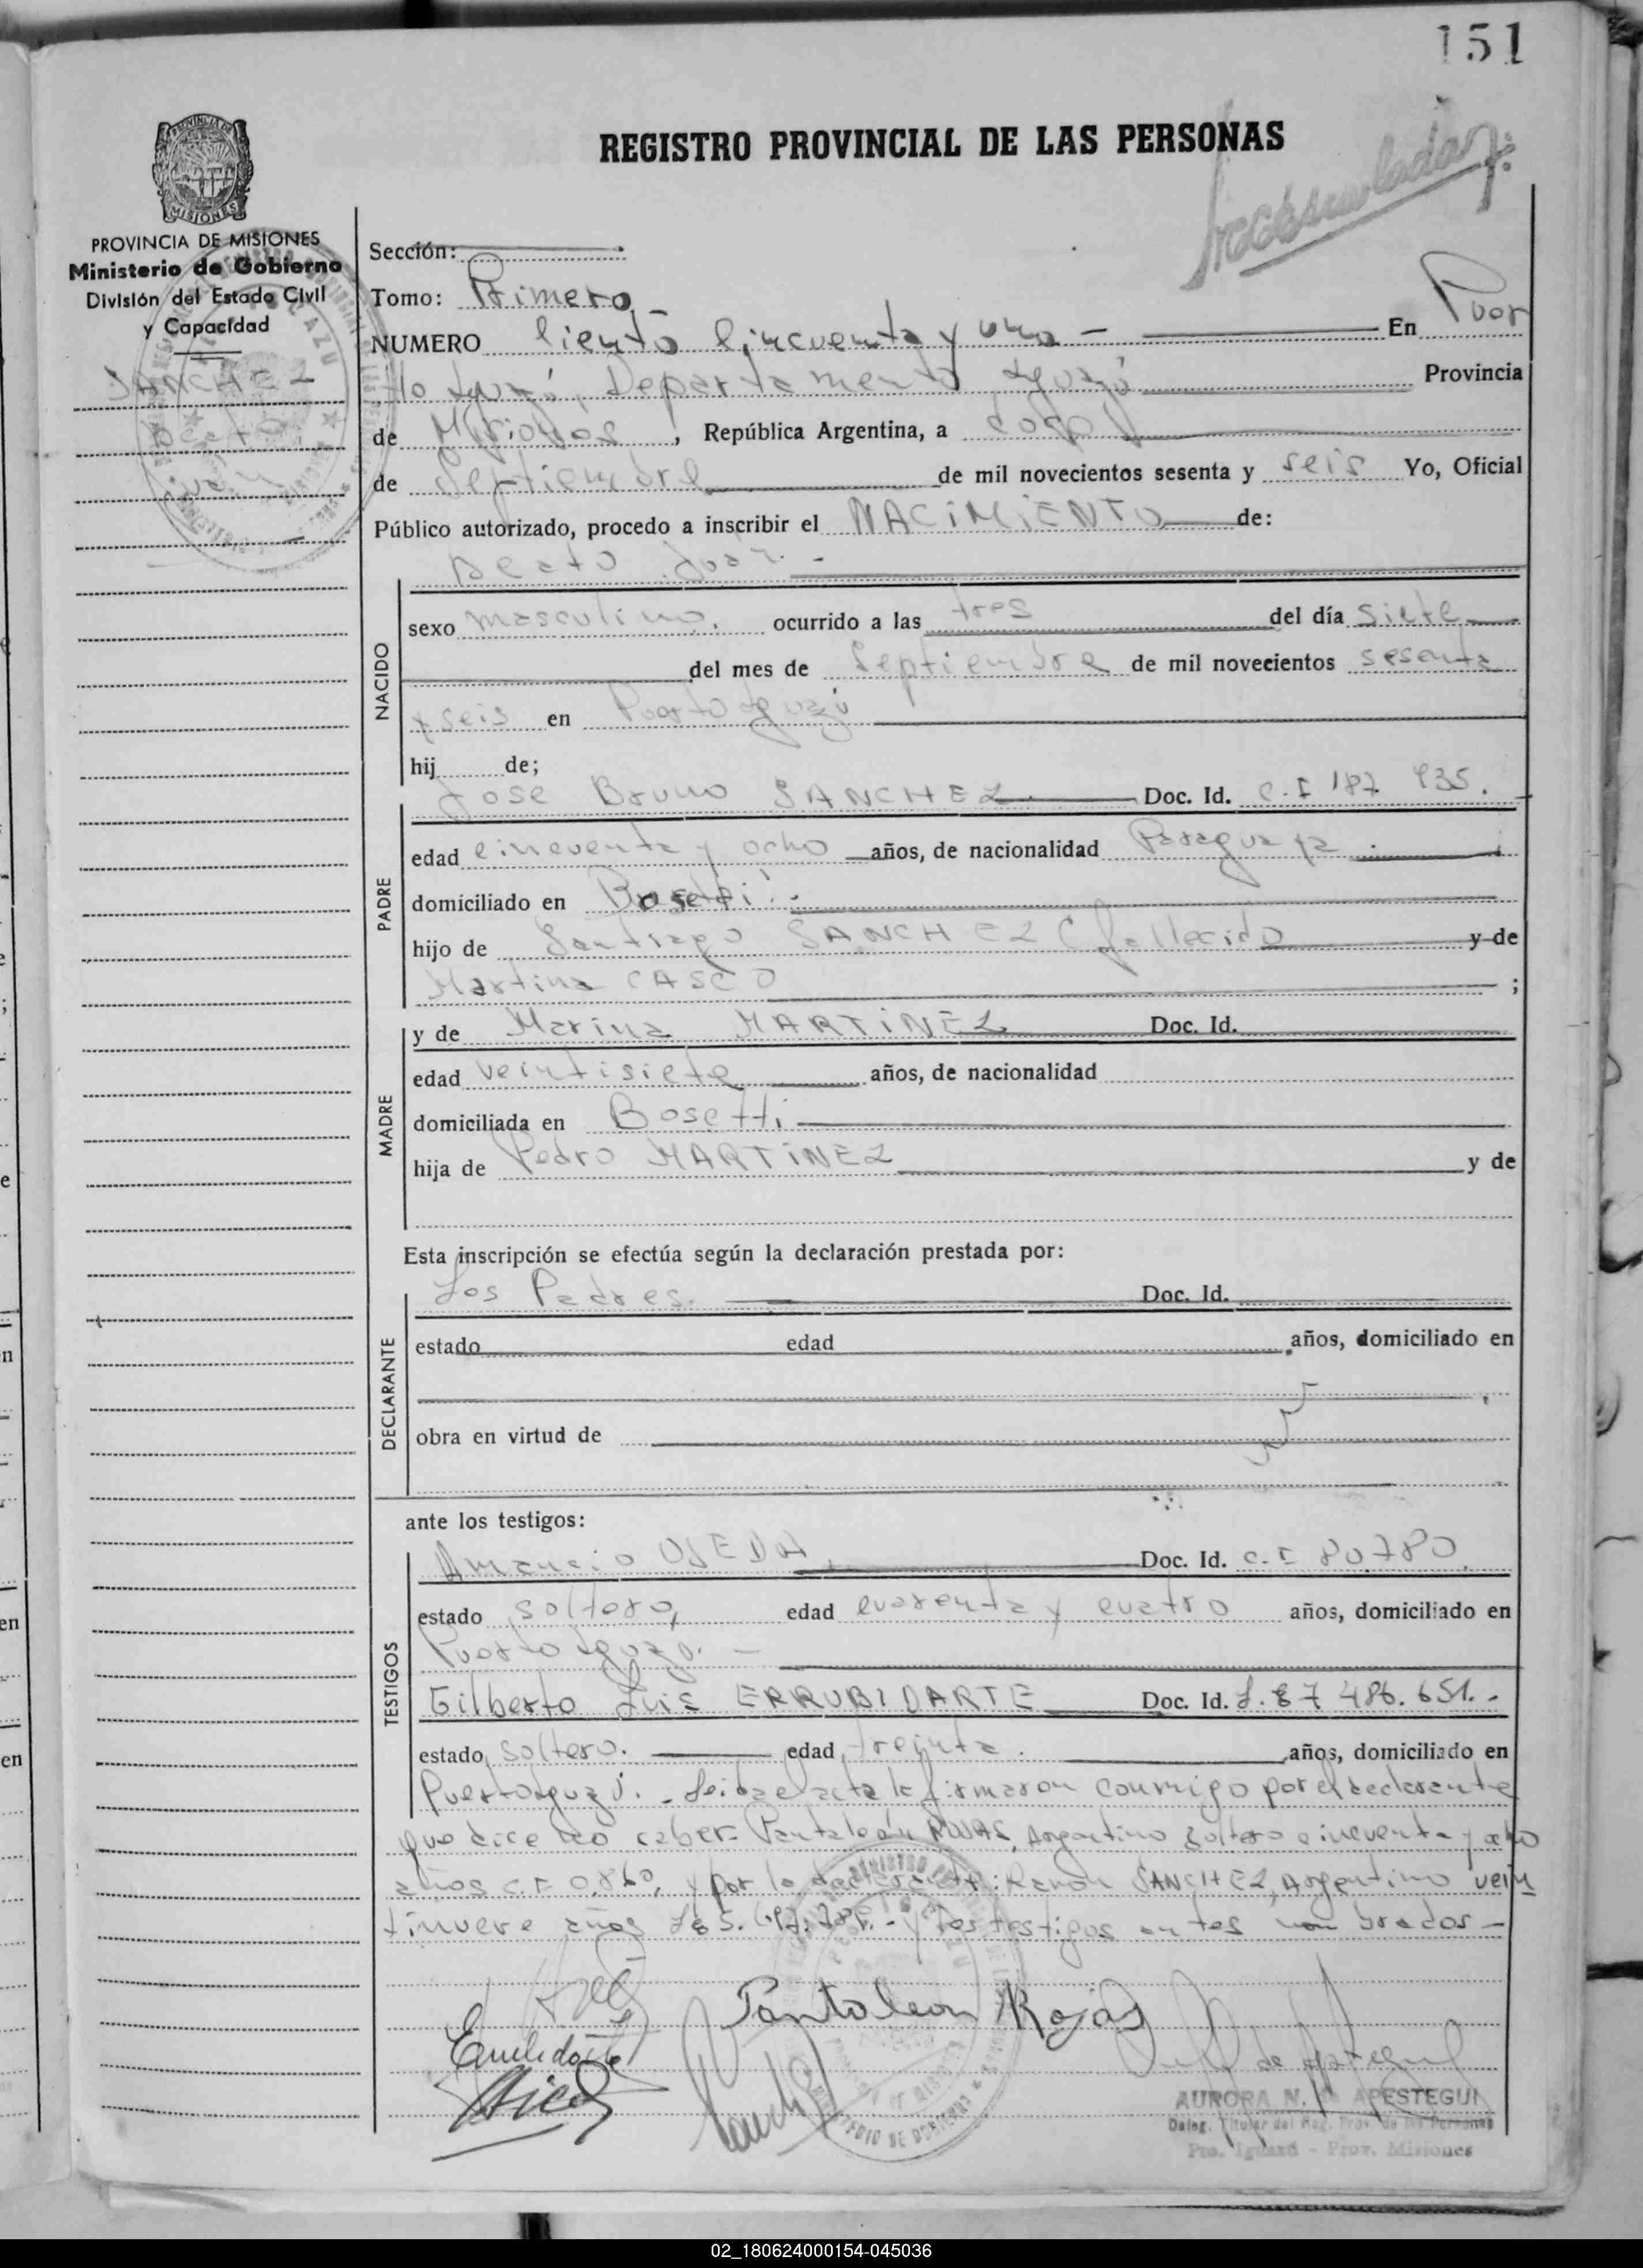 151
REGISTRO PROVINCIAL DE LAS PERSONAS
PROVINCIA DE MISIONES
Ministerio de Gobierno
División del Estado Civil
y Capacidad
SANCHEZ
Sección:
Tomo: Primero
NUMERO Ciento Cincuenta y uno - En Puer
to Iguazú, Departamento Iguazú Provincia
de Misiones, República Argentina, a doce
de Septiembre de mil novecientos sesenta y seis Yo, Oficial
Público autorizado, procedo a inscribir el NACIMIENTO de:
NACIDO
sexo masculino. ocurrido a las tres del día siete
del mes de Septiembre de mil novecientos sesenta
y seis en Puerto Iguazú
hij de;
Jose Bruno SANCHEZ Doc. Id. C.I 187 935.
PADRE
edad cincuenta y ocho años, de nacionalidad Paraguaya ;
domiciliado en Bosetti.
hijo de Santiago SANCHEZ (fallecido y de
Martina CASCO ;
y de Marina MARTINEZ Doc. Id.
MADRE
edad veintisiete años, de nacionalidad
domiciliada en Bosetti
hija de Pedro MARTINEZ y de
Esta inscripción se efectúa según la declaración prestada por:
Los Padres. Doc. Id.
DECLARANTE
estado edad años, domiciliado en
obra en virtud de
ante los testigos:
Amancio OJEDA, Doc. Id. C.I 80.780.
TESTIGOS
estado soltero, edad cuarenta y cuatro años, domiciliado en
Puerto Iguazú. -
Gilberto Luis ERRUBIDARTE Doc. Id. 486.651. -
estado soltero. edad treinta. años, domiciliado en
Puerto Iguazú. - Leida el acta la firmaron conmigo por el declarante
que dice no saber- Pantaleón ROJAS, Argentino soltero cincuenta y ocho
años C.I y por la declarante: Ramón SANCHEZ, Argentino vein
tinueve años y los testigos antes nombrados -
Pantoleon Rojas
AURORA N. APESTEGUI
Deleg. Titular del Reg. Prov. de las Personas
Pto. Iguazú - Prov. Misiones
02_180624000154-045036